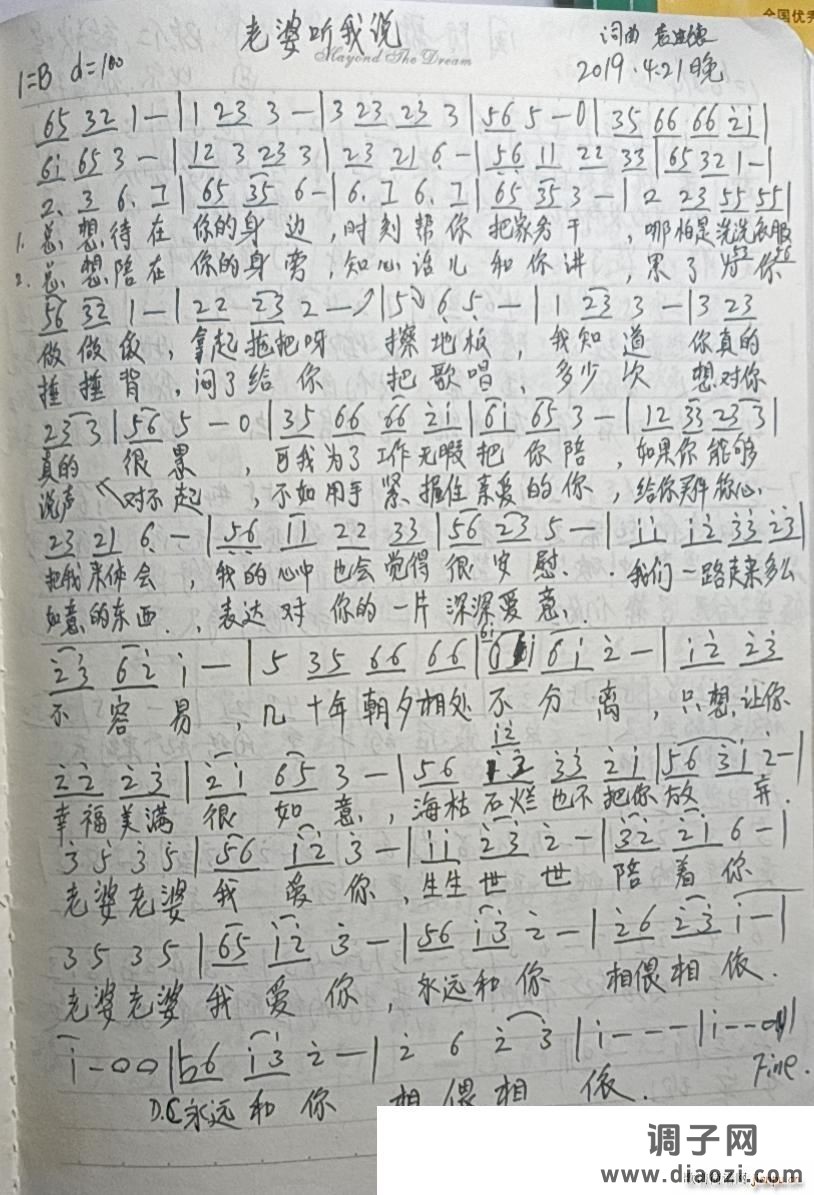 全国优秀
老婆听我说
Mayond The Dream
词曲
2019.4.21晚
1=B d=100
65 32 1 - | 1 23 3 - | 3 23 23 3 | 56 5 - 0 | 35 66 66 2̇1̇ |
61̇ 65 3 - | 12 3 23 3 | 23 21 6̣ - | 5̣6̣ 11 22 33 | 65 32 1 - |
65 35 6 - | 65 35 3 - | 2 23 55 55 |
1. 总想待在 你的身边,时刻帮你 把家务干,哪怕是洗洗衣服
2. 总想陪在 你的身旁,知心话儿 和你讲,累了为你
56 32 1 - | 22 23 2 - | 5 6̣ 5̣ - | 1 23 3 - | 3 23
做做饭,拿起拖把呀 擦地板,我知道 你真的
捶捶背,闷了给你 把歌唱,多少次 想对你
23 3 | 56 5 - 0 | 35 66 66 2̇1̇ | 61̇ 65 3 - | 12 33 23 3 |
真的 很累,可我为了工作无暇把你陪,如果你能够
说声 对不起,不如用手紧握住亲爱的你,给你买件称心
23 21 6̣ - | 5̣6̣ 11 22 33 | 56 23 5 - | 1̇1̇ 1̇2̇ 3̇3̇ 2̇3̇ |
把我来体会,我的心中也会觉得很安慰.我们一路走来多么
如意的东西.,表达对你的一片深深爱意.
2̇3̇ 62̇ 1̇ - | 5 35 66 66 | 61̇ 2̇ - | 1̇2̇ 2̇3̇
不容易,几十年朝夕相处不分离,只想让你
1̇2̇
2̇2̇ 2̇3̇ | 2̇1̇ 65 3 - | 56 3̇3̇ 2̇1̇ | 56 3̇1̇ 2̇ - |
幸福美满 很如意,海枯石烂也不把你放弃.
3̇ 5̇ 3̇ 5̇ | 56 1̇2̇ 3̇ - | 1̇1̇ 2̇3̇ 2̇ - | 3̇2̇ 2̇1̇ 6 - |
老婆老婆我爱你,生生世世陪着你
3 5 3 5 | 65 1̇2̇ 3̇ - | 56 1̇3̇ 2̇ - | 2̇6 2̇3̇ 1̇ - |
老婆老婆我爱你,永远和你 相偎相依.
1̇ - 0 0 | 56 1̇3̇ 2̇ - | 2̇ 6 2̇ 3̇ | 1̇ - - - | 1̇ - - 0 |
D.C 永远和你 相偎相依. Fine.
调子网
www.diaozi.com